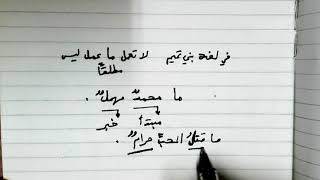 في لغة بني تميم لا تعمل ما عمل ليس
مطلقاً
ما محمدٌ مهملٌ .
مبتدأ خبر
ما قتلُ المحبِّ حرامٌ .